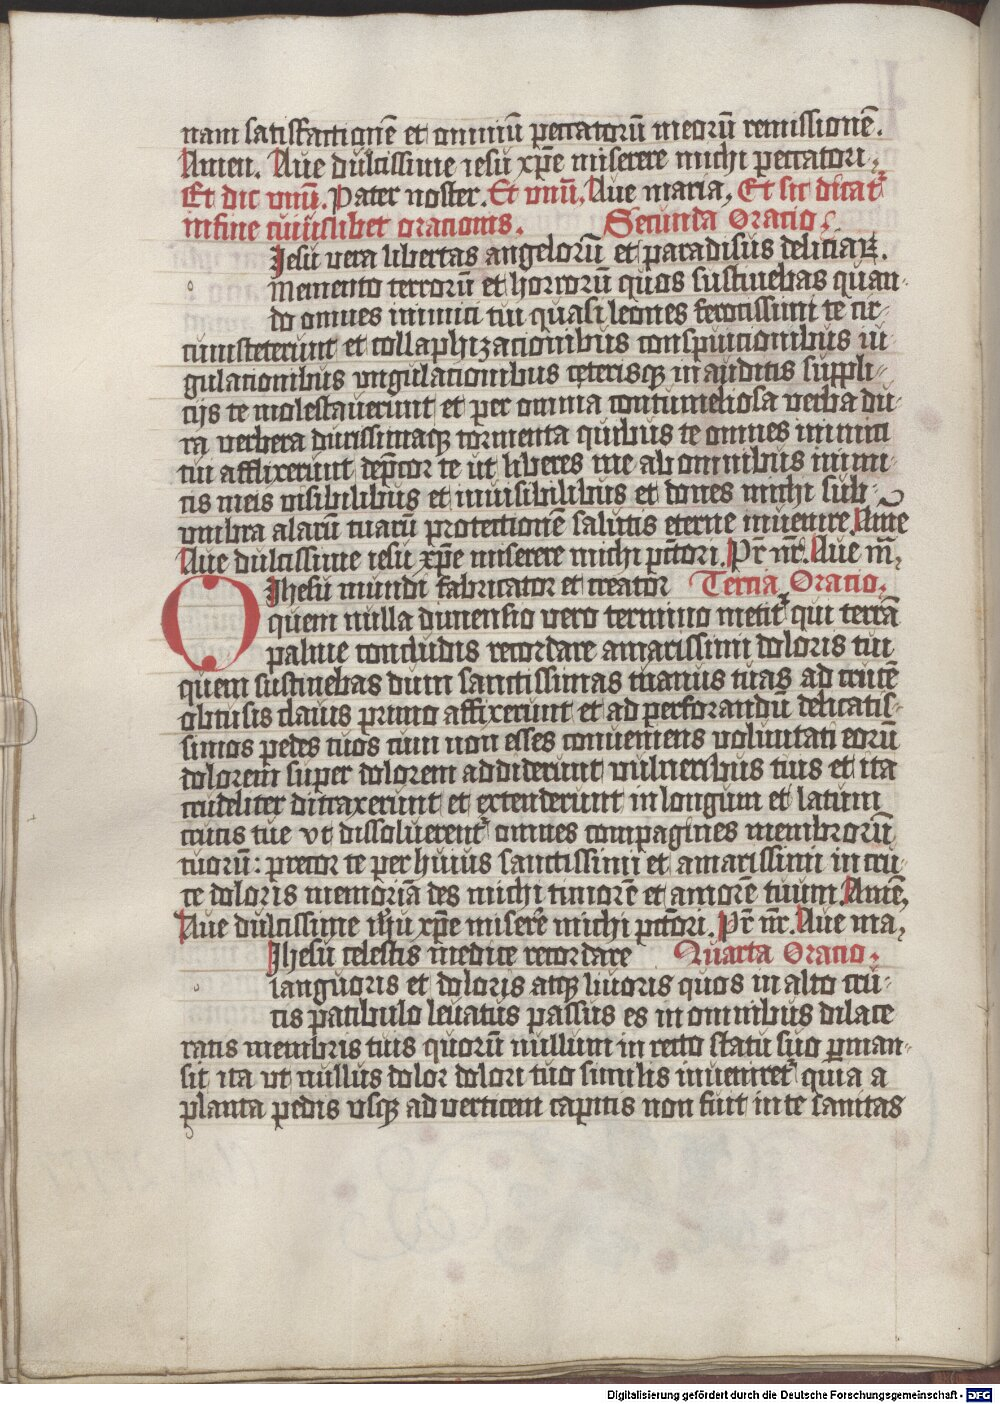 nam satisfactionē et omniū peccatorū meorū remissionē.
Amen. Aue dulcissime iesu xp̄e miserere michi peccatori.
Et dic vnū. Pater noster. Et vnū. Aue maria, Et sic dicatᷣ
in fine cuiuslibet oracionis. Secunda Oracio.
Iesu vera libertas angelorū et paradisus deliciaꝝ.
o memento terrorū et horrorū quos sustinebas quan-
do omnes inimici tui quasi leones ferocissimi te cir-
cumsteterunt et collaphizacionibus conspuicionibus iu-
gulacionibus vngulacionibus ceterisqꝫ inauditis suppli-
cijs te molestauerunt et per omnia contumeliosa verba du-
ra verbera durissimaqꝫ tormenta quibus te omnes inimici
tui afflixerunt dep̄cor te ut liberes me ab omnibus inimi-
cis meis visibilibus et inuisibilibus et dones michi sub
vmbra alarū tuarū protectionē salutis eterne inuenire. Amē
Aue dulcissime iesu xp̄e miserere michi pctōri. Pr̄ nr̄. Aue m̄,
O Ihesu mundi fabricator et creator Tercia Oracio.
quem nulla dimensio vero termino metitᷣ qui terrā
palme concludis recordare amarissimi doloris tui
quem sustinebas dum sanctissimas manus tuas ad crucē
obtusis clauis primo affixerunt et ad perforandū delicatis-
simos pedes tuos cum non esses conueniens voluntati eorū
dolorem super dolorem addiderunt vulneribus tuis et ita
crudeliter distraxerunt et extenderunt in longum et latum
crucis tue vt dissoluerentᷣ omnes compagines membrorū
tuorū: precor te per huius sanctissimi et amarissimi in cru-
ce doloris memoriā des michi timorē et amorē tuum. Amē,
Aue dulcissime ihū xp̄e miserē michi pctōri. Pr̄ nr̄. Aue ma,
Ihesu celestis medice recordare Quarta Oracio.
o languoris et doloris atqꝫ liuoris quos in alto cru-
cis patibulo leuatus passus es in omnibus dilace
ratis membris tuis quorū nullum in recto statu suo ꝑman-
sit ita vt nullus dolor dolori tuo similis inueniretᷣ quia a
planta pedis vsqꝫ ad verticem capitis non fuit in te sanitas
Digitalisierung gefördert durch die Deutsche Forschungsgemeinschaft - DFG